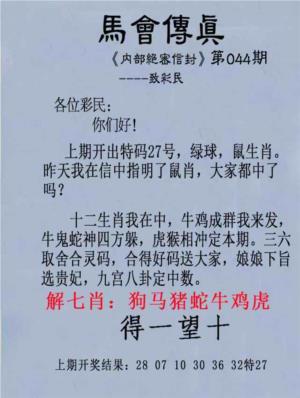 馬會傳眞
《内部絕密信封》第044期
----致彩民
各位彩民：
你们好！
上期开出特码27号，绿球，鼠生肖。
昨天我在信中指明了鼠肖，大家都中了
吗？
十二生肖我在中，牛鸡成群我来发，
牛鬼蛇神四方躲，虎猴相冲定本期。三六
取舍合灵码，合得好码送大家，娘娘下旨
选贵妃，九宫八卦定中数。
解七肖：狗马猪蛇牛鸡虎
得一望十
上期开奖结果：28 07 10 30 36 32特27